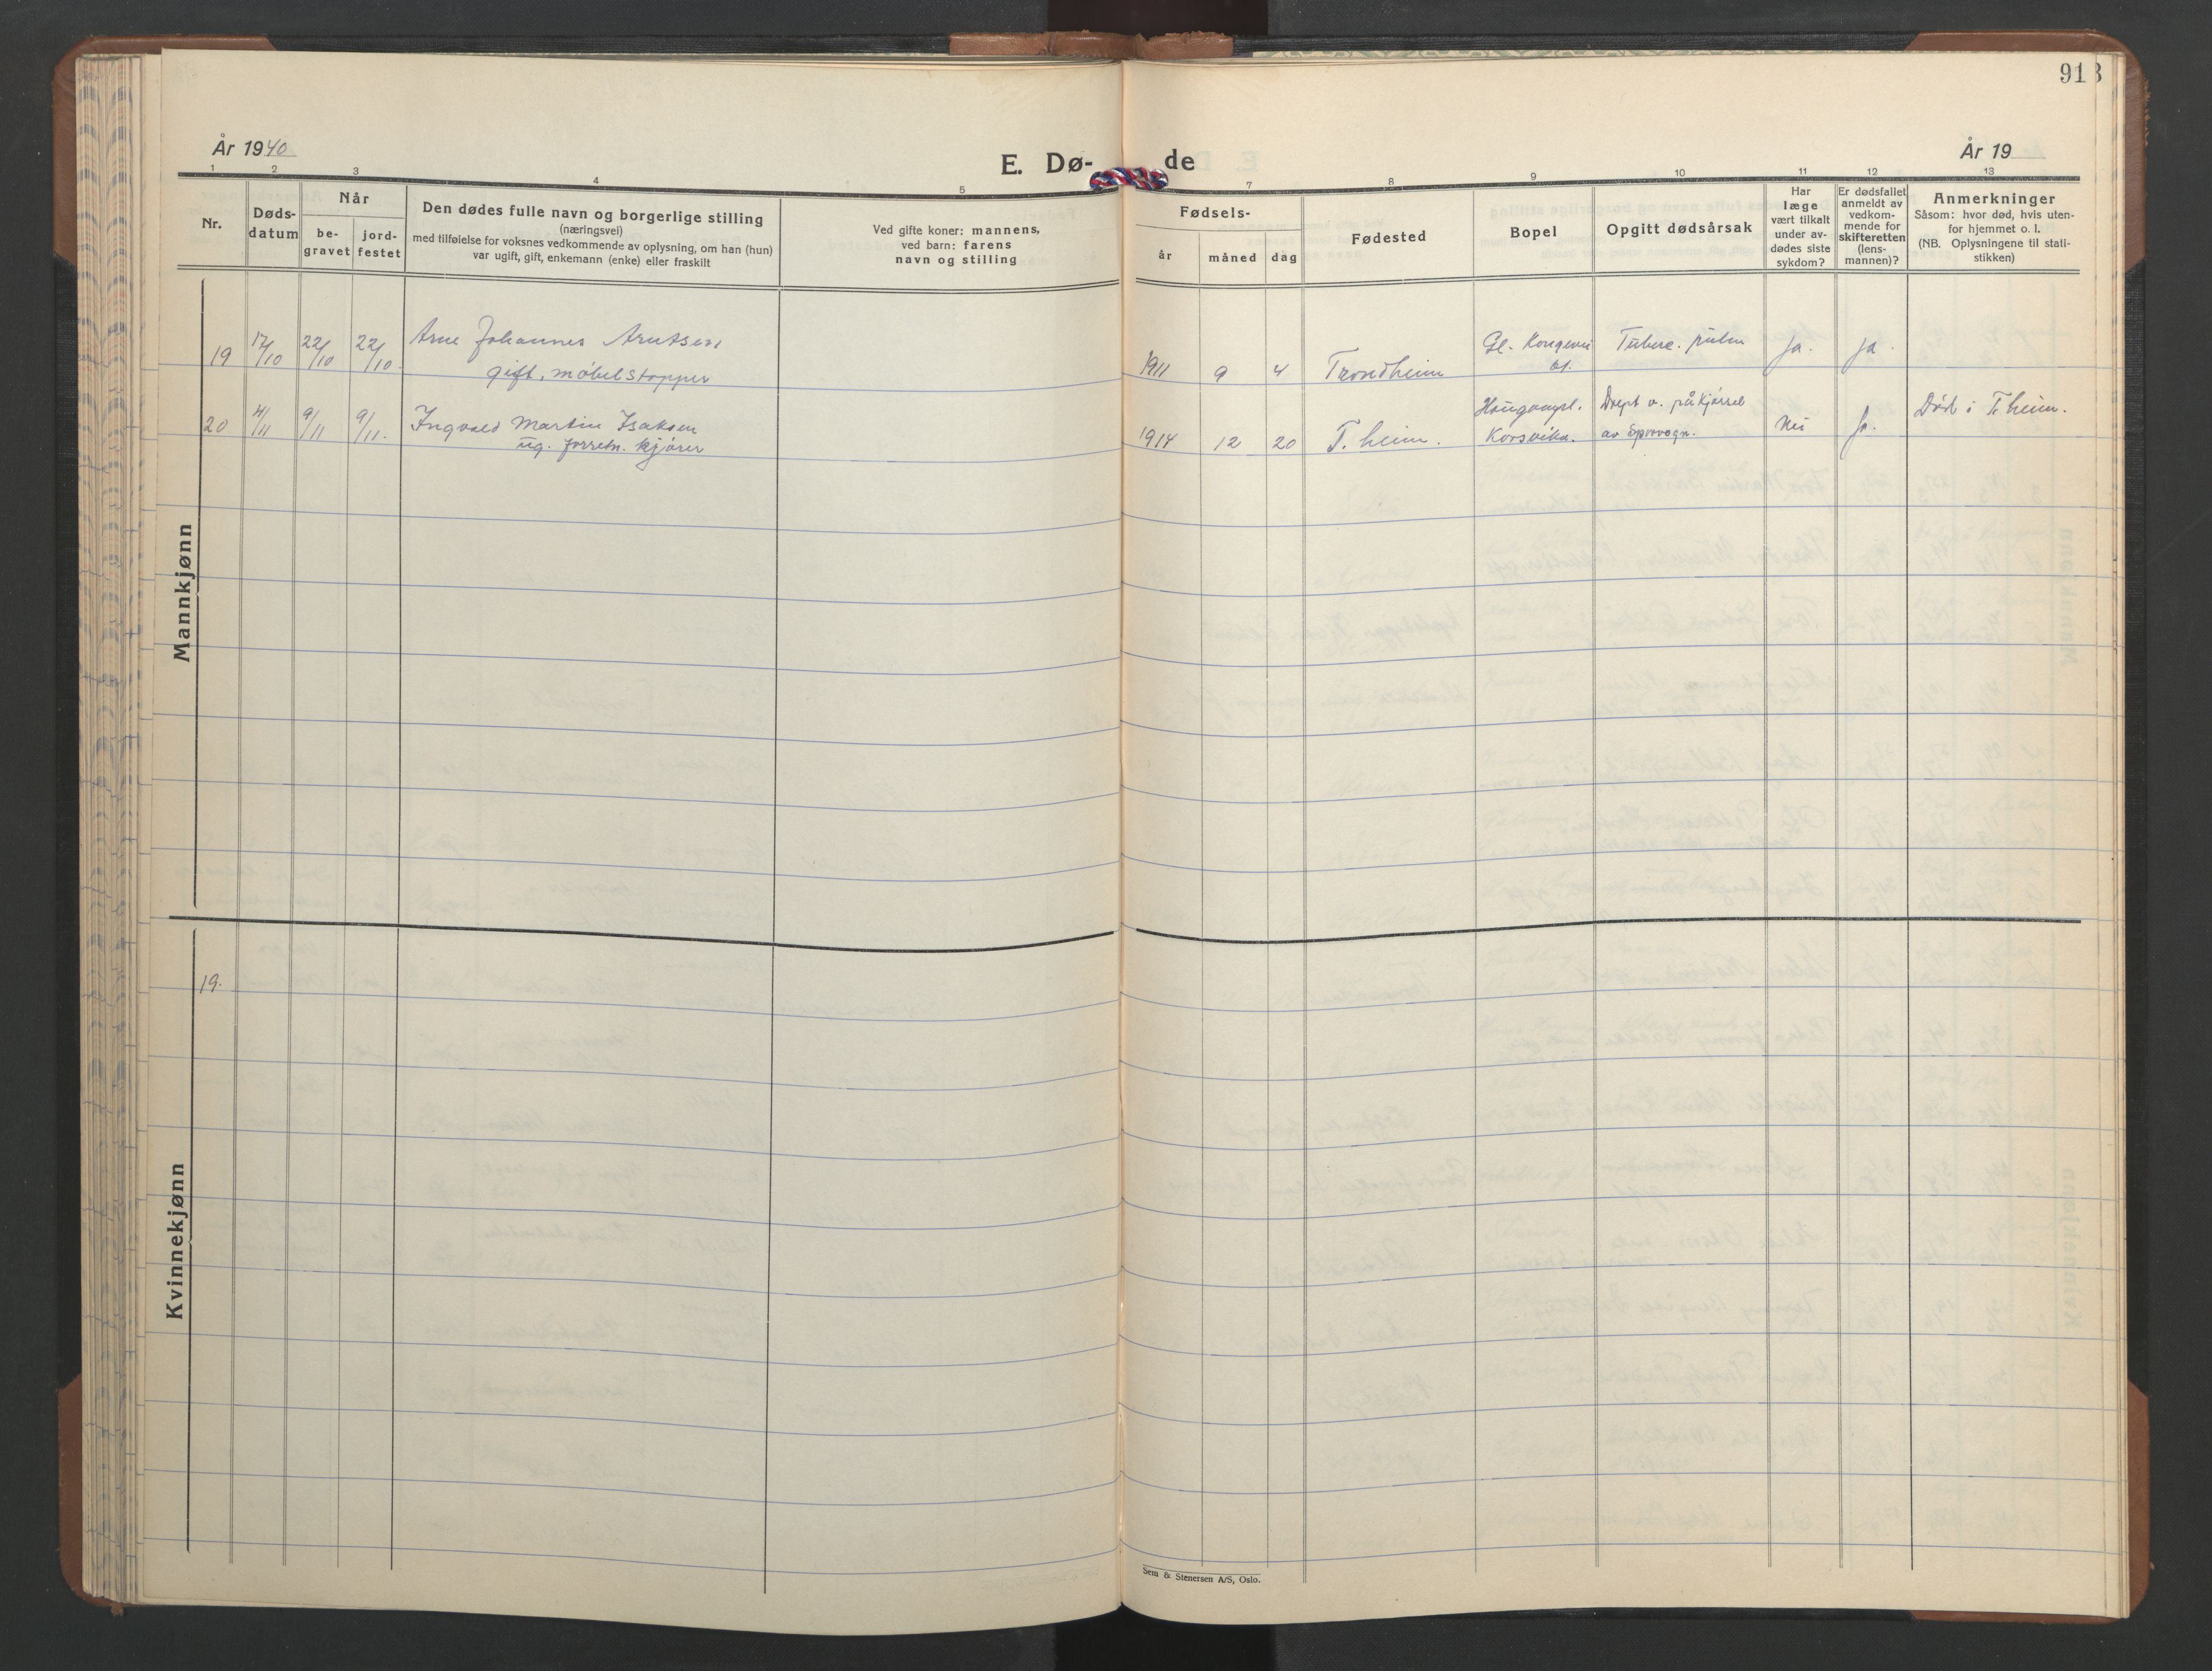 91
År 1940
E. Dø-
de
År 19
1 2 3 4 5 7 8 9 10 11 12 13
Nr.
Døds-
datum
Når
be-
gravet
jord-
festet
Den dødes fulle navn og borgerlige stilling
(næringsvei)
med tilføielse for voksnes vedkommende av oplysning, om han (hun)
var ugift, gift, enkemann (enke) eller fraskilt
Ved gifte koner: mannens,
ved barn: farens
navn og stilling
Fødsels-
år måned dag
Fødested
Bopel
Opgitt dødsårsak
Har
læge
vært tilkalt
under av-
dødes siste
sykdom?
Er dødsfallet
anmeldt av
vedkom-
mende for
skifteretten
(lens-
mannen)?
Anmerkninger
Såsom: hvor død, hvis uten-
for hjemmet o. l.
(NB. Oplysningene til stati-
stikken)
Mannkjønn
19 17/10 22/10 22/10. Arne Johannes Arntsen
gift, møbelstopper
1911 9 4 Trondheim
Gl. Kongevei
Tuberc. pulm
ja. ja.
20 4/11 9/11 9/11. Ingvald Martin Isaksen
ug. forretn. kjører
1914 12 20 T.heim.
Korsvika.
Drept v. påkjørsel
av Sporvogn.
Nei Ja.
Død i T.heim.
Kvinnekjønn
19.
Sem & Stenersen A/S, Oslo.